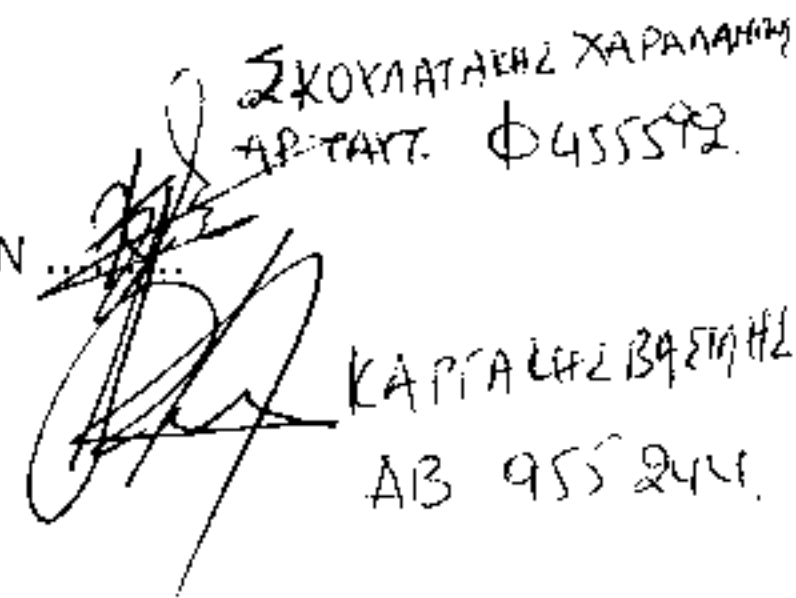 ΣΚΟΥΛΑΤΑΚΗΣ ΧΑΡΑΛΑΜΠΗΣ
ΑΡ. ΤΑΥΤ. Φ 455592.
Ν ..........
ΚΑΡΓΑΚΗΣ ΒΑΣΙΛΗΣ
ΑΒ 955244.